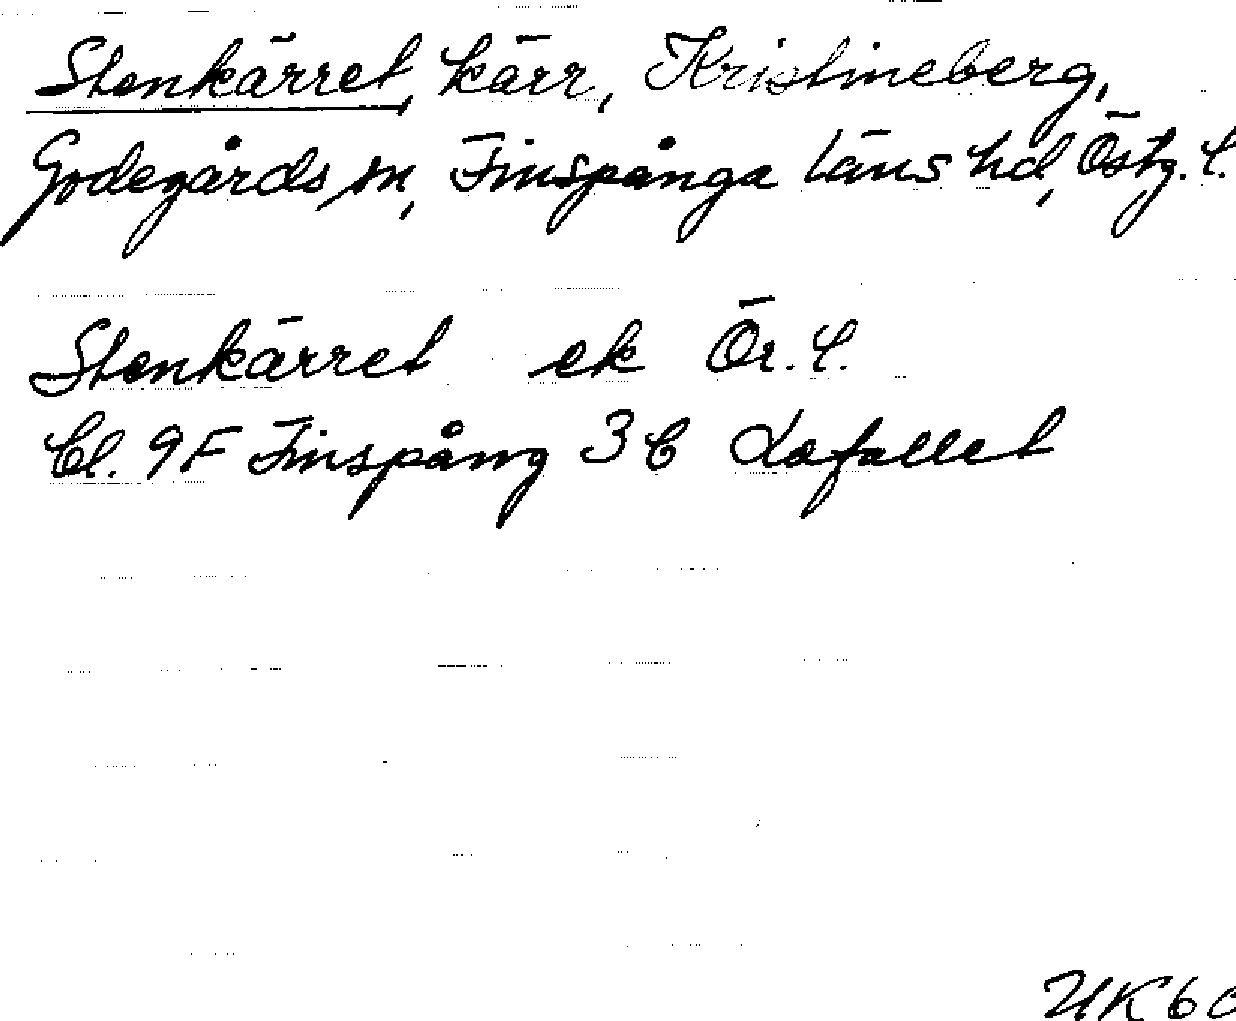 Stenkärret, kärr, Kristineberg,
Godegårds sn, Finspånga läns hd, Östg. l.
Stenkärret ek Ör. l.
Bl. 9F Finspång 3 C Laxfallet
UK 60